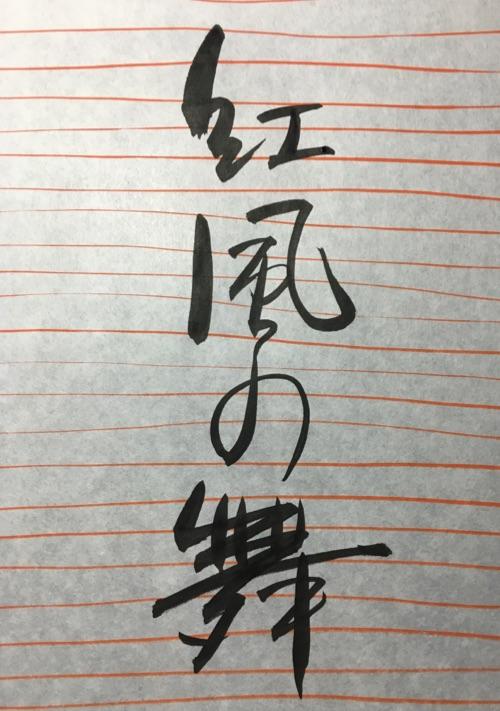 紅風の舞